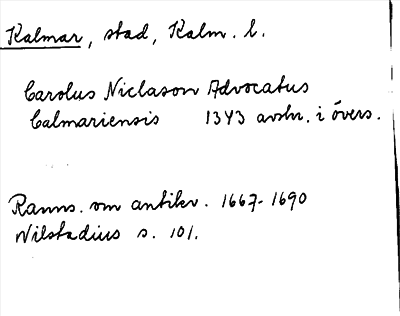 Kalmar, stad, Kalm. l.
Carolus Niclason Advocatus
Calmariensis 1343 avskr. i övers.
Ranns. om antikv. 1667-1690
Nilstadius s. 101.